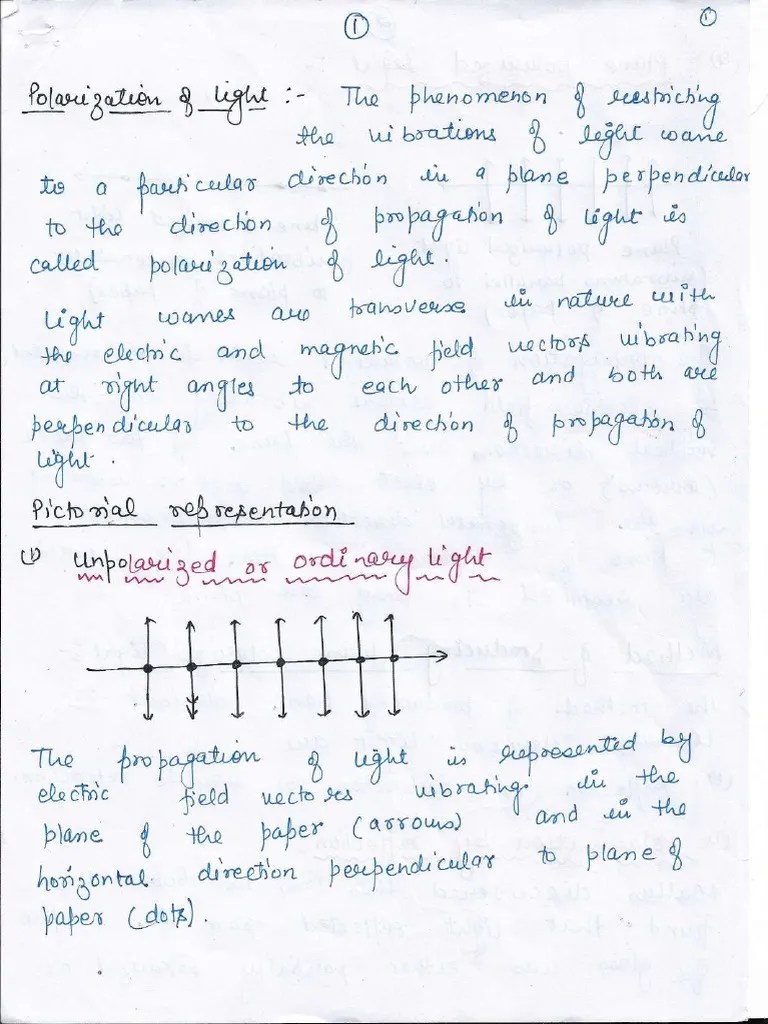 ① ①
Polarization of light :- The phenomenon of restricting
the vibrations of light wave
to a particular direction in a plane perpendicular
to the direction of propagation of light is
called polarization of light.
Light waves are transverse in nature with
the electric and magnetic field vectors vibrating
at right angles to each other and both are
perpendicular to the direction of propagation of
light.
Pictorial representation
(1) Unpolarized or ordinary light
The propagation of light is represented by
electric field vectores vibrating in the
plane of the paper (arrows) and in the
horizontal direction perpendicular to plane of
paper (dots).